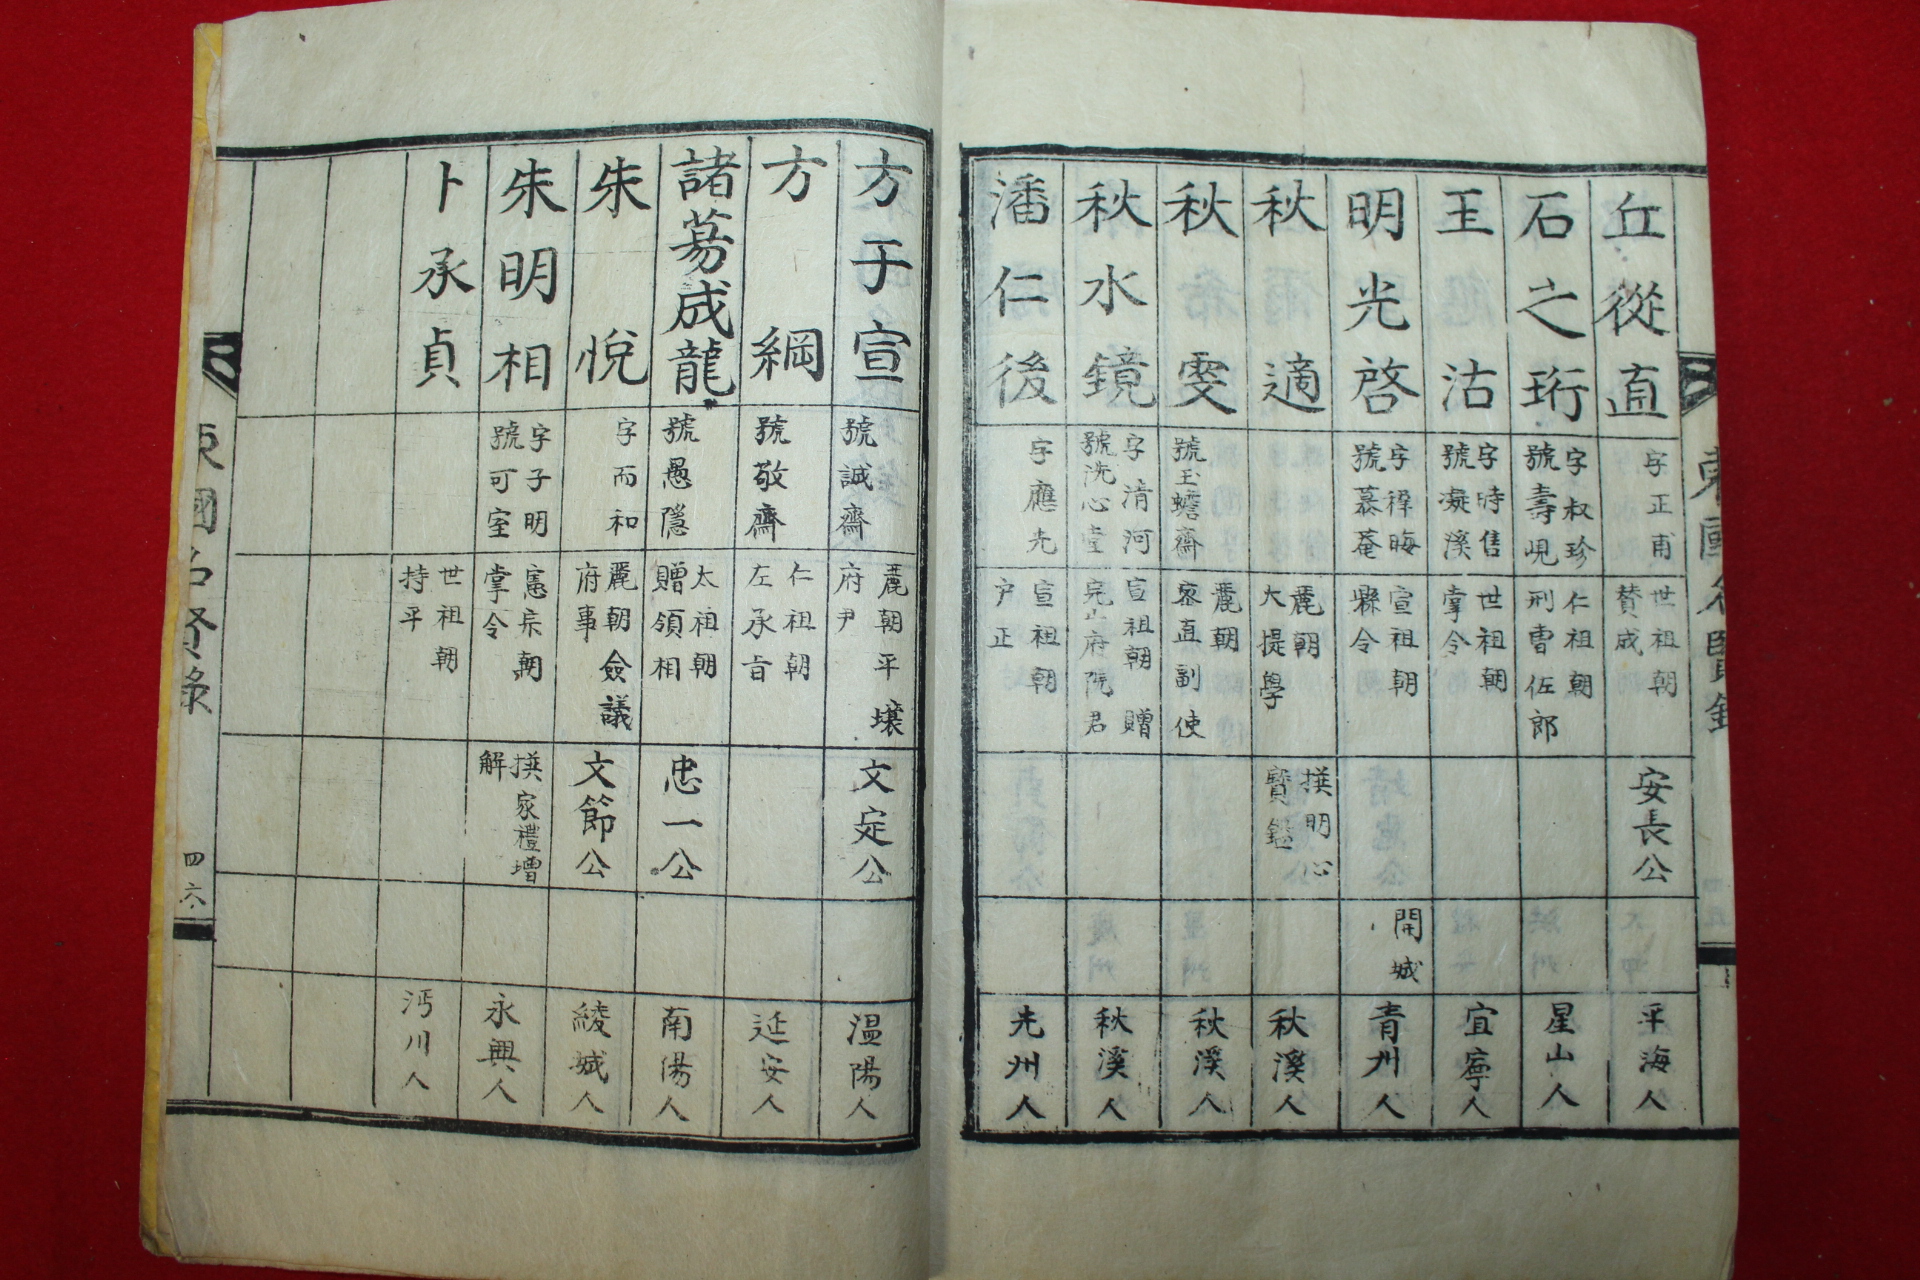 丘從直
字正甫
世祖朝
賛成
安長公
平海人
石之珩
字叔珍
號壽峴
仁祖朝
刑曹佐郎
星山人
王沽
字時售
號凝溪
世祖朝
掌令
宜寧人
明光啓
字稺晦
號慕菴
宣祖朝
縣令
開城
青州人
秋適
麗朝
大提學
撰明心
寶鑑
秋溪人
秋雯
號玉蟾齋
麗朝
密直副使
秋溪人
秋水鏡
字清河
號洗心堂
宣祖朝贈
完山府院君
秋溪人
潘仁後
字應先
宣祖朝
户正
光州人
方于宣
號誠齋
麗朝平壤
府尹
文定公
温陽人
方綱
號敬齋
仁祖朝
左承旨
延安人
諸葛成龍
號愚隱
太祖朝
贈領相
忠一公
南陽人
朱悅
字而和
麗朝僉議
府事
文節公
綾城人
朱明相
字子明
號可室
憲宗朝
掌令
撰家禮增
解
永興人
卜承貞
世祖朝
持平
沔川人
東國名賢錄
四六